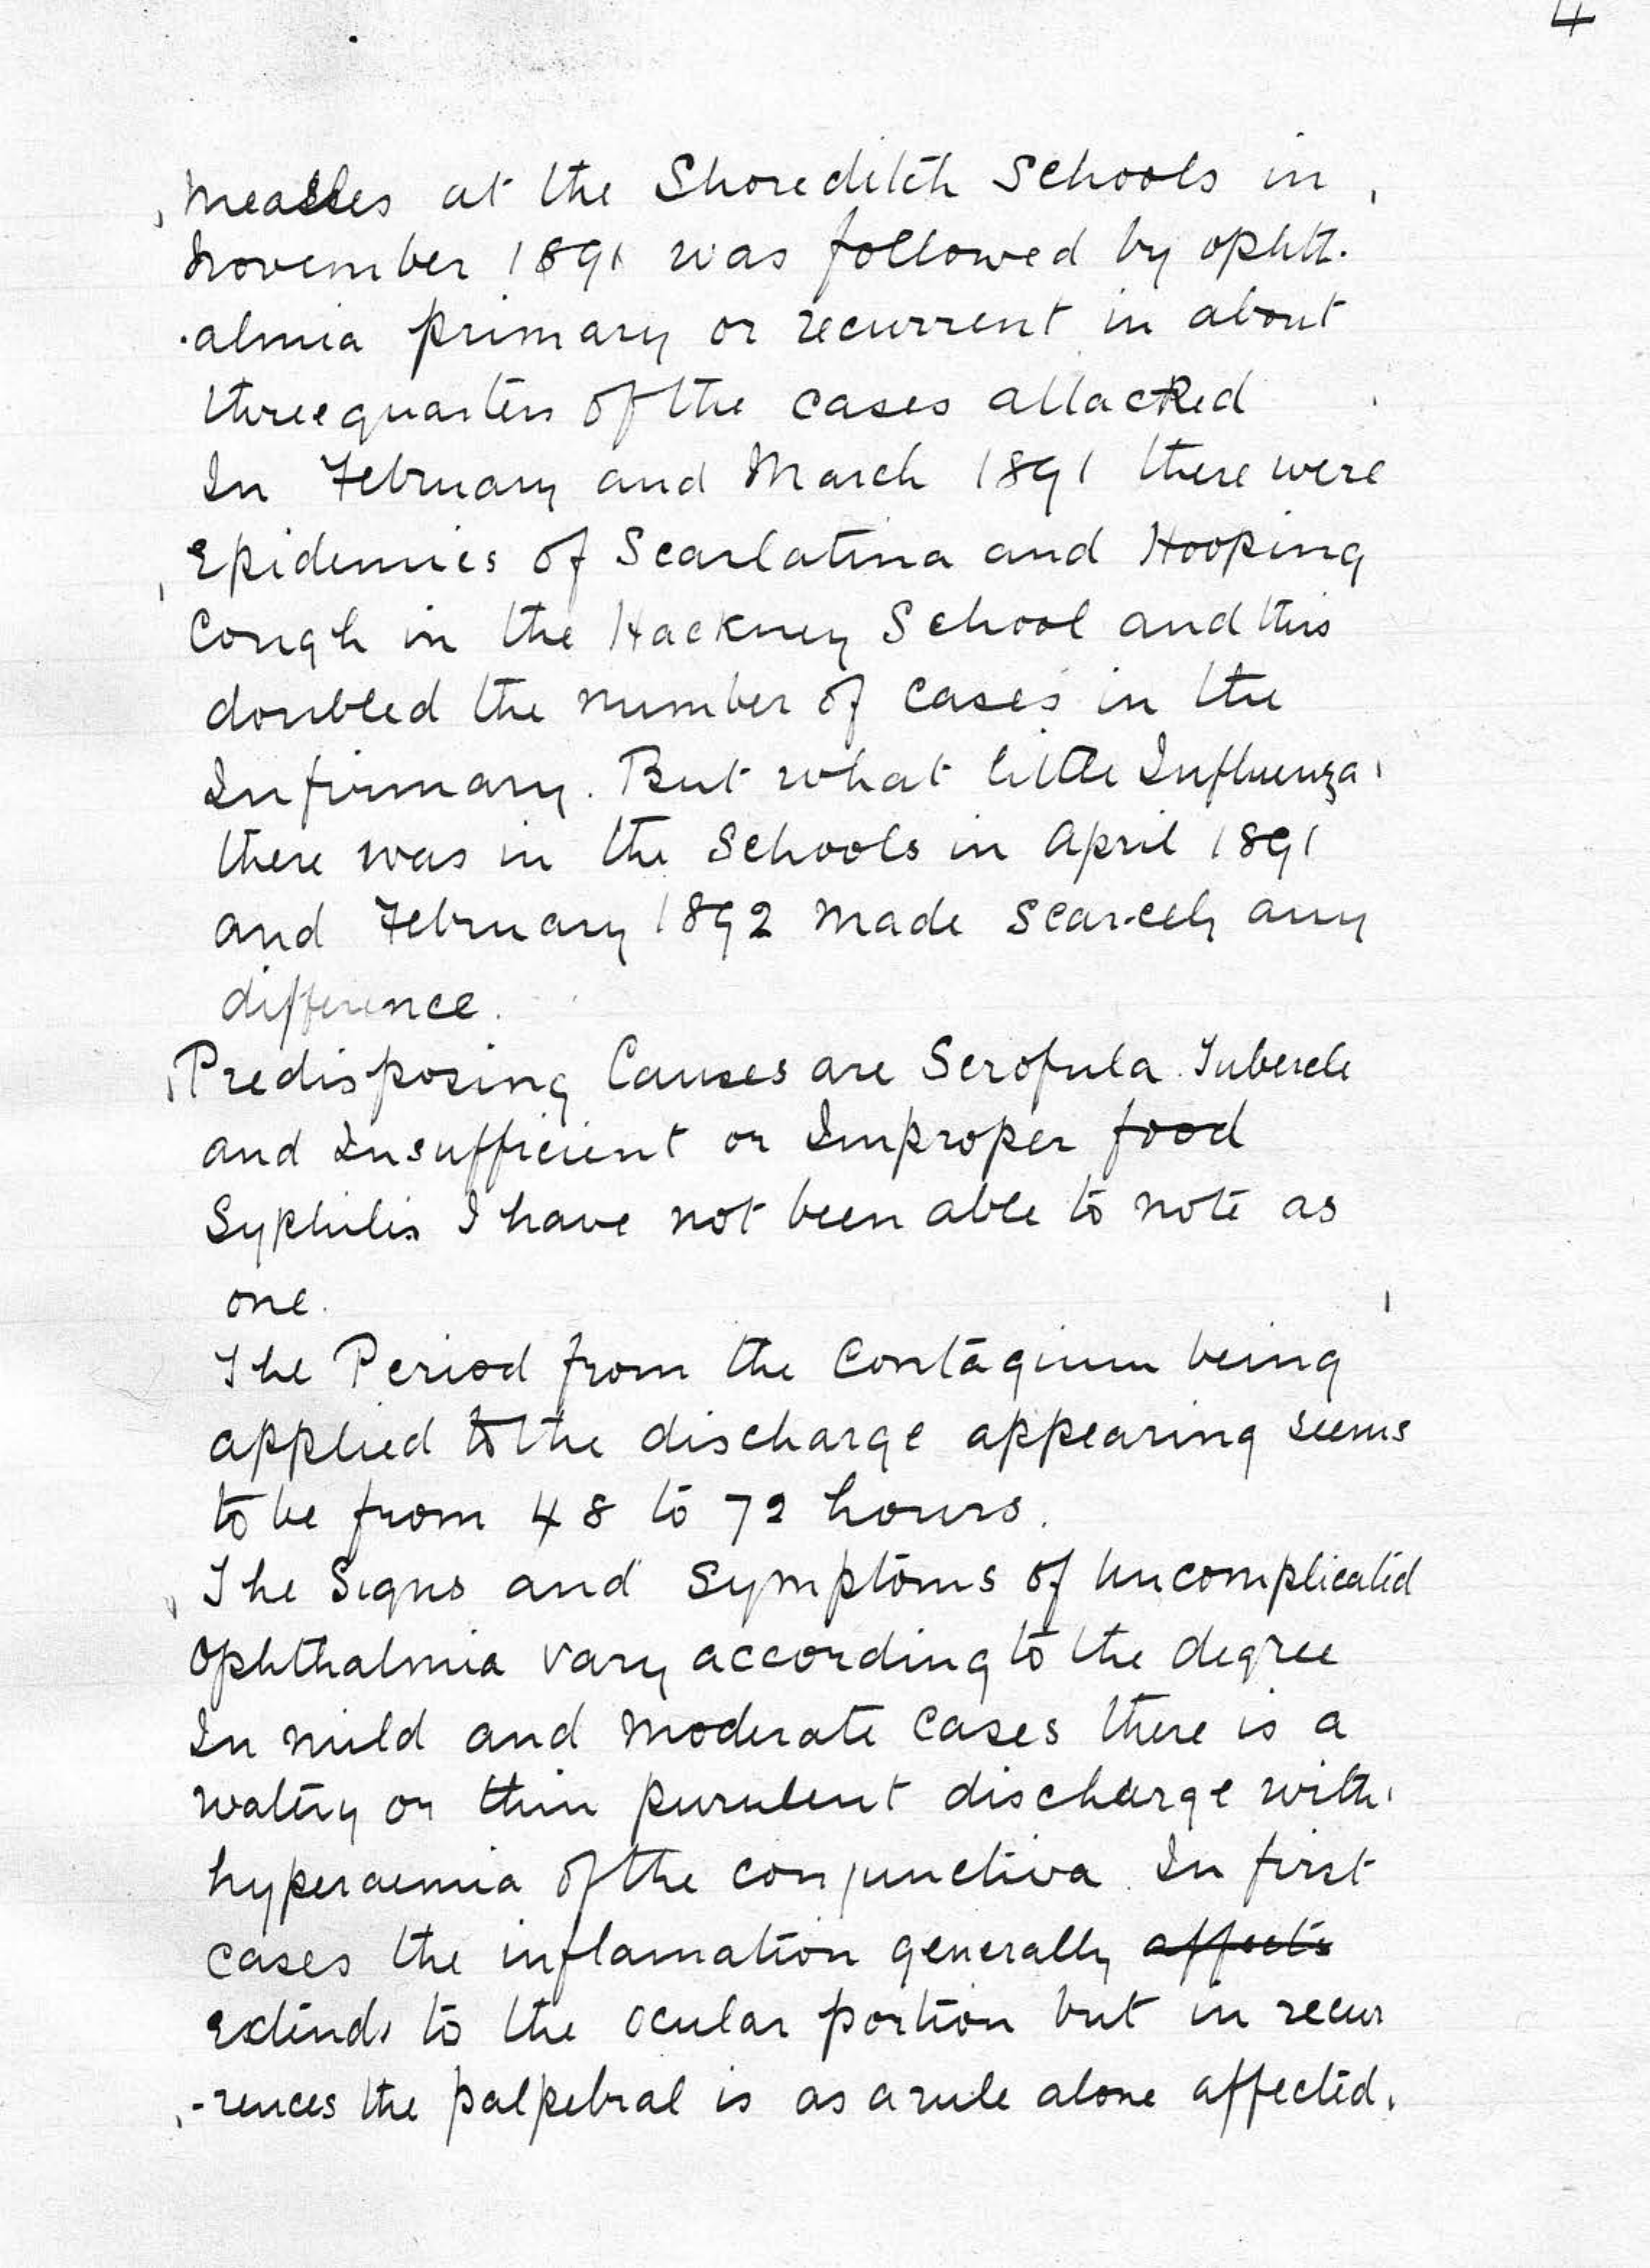 4
Measles at the Shoreditch Schools in
November 1891 was followed by ophth-
-almia primary or recurrent in about
threequarters of the cases attacked
In February and March 1891 there were
Epidemics of Scarlatina and Hooping
Cough in the Hackney School and this
doubled the number of cases in the
Infirmary. But what little Influenza
there was in the Schools in April 1891
and February 1892 made scarcely any
difference.
Predisposing Causes are Scrofula. Tubercle
and Insufficient or Improper food
Syphilis I have not been able to note as
one.
The Period from the Contagium being
applied to the discharge appearing seems
to be from 48 to 72 hours.
The Signs and Symptoms of Uncomplicated
Ophthalmia vary according to the degree
In mild and moderate cases there is a
watery or thin purulent discharge with
hyperaemia of the conjunctiva. In first
cases the inflamation generally affects
extends to the ocular portion but in recur
-rences the palpebral is as a rule alone affected.